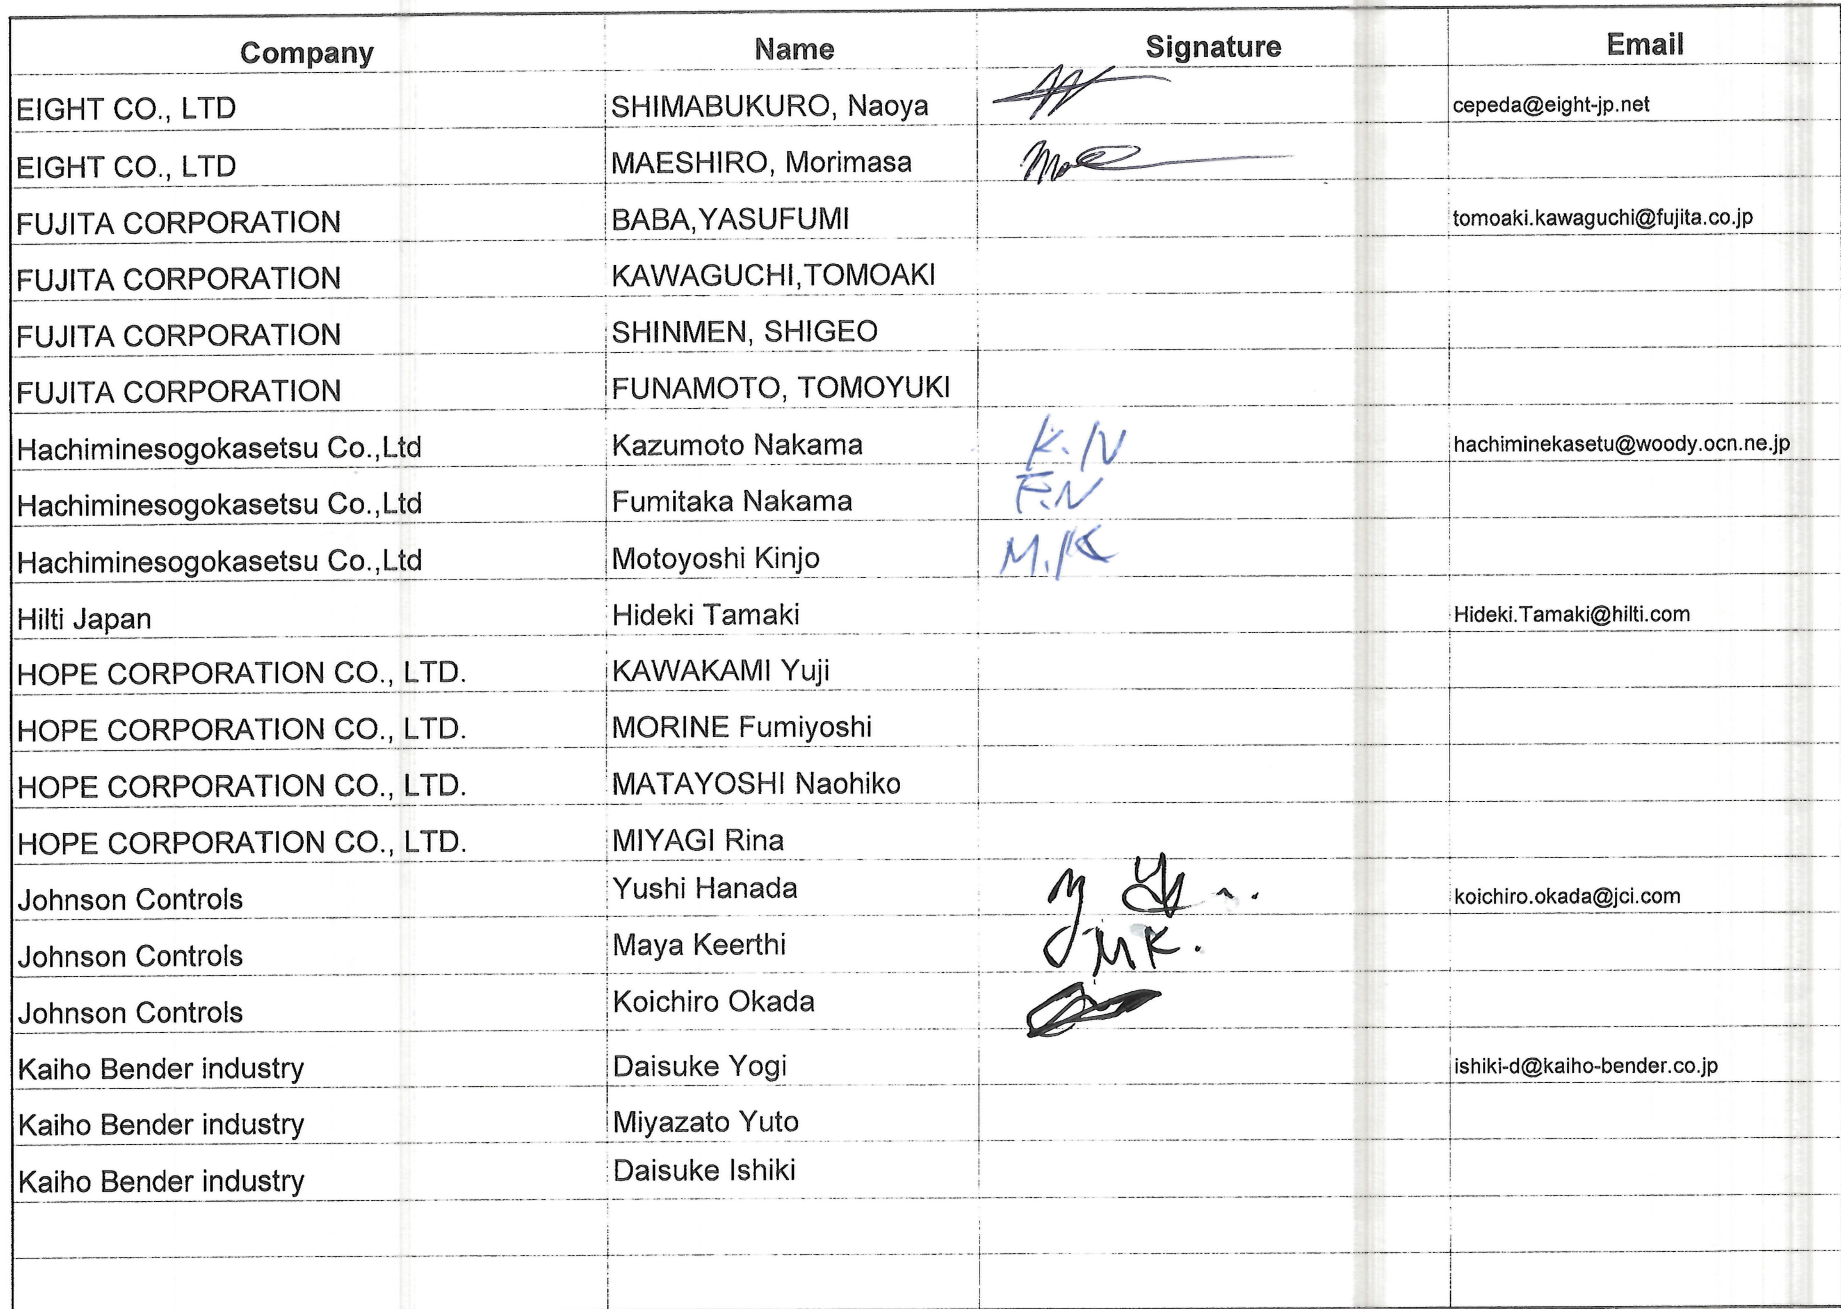 Company Name Signature Email
EIGHT CO., LTD SHIMABUKURO, Naoya cepeda@eight-jp.net
EIGHT CO., LTD MAESHIRO, Morimasa
FUJITA CORPORATION BABA,YASUFUMI tomoaki.kawaguchi@fujita.co.jp
FUJITA CORPORATION KAWAGUCHI,TOMOAKI
FUJITA CORPORATION SHINMEN, SHIGEO
FUJITA CORPORATION FUNAMOTO, TOMOYUKI
Hachiminesogokasetsu Co.,Ltd Kazumoto Nakama K.N hachiminekasetu@woody.ocn.ne.jp
Hachiminesogokasetsu Co.,Ltd Fumitaka Nakama F.N
Hachiminesogokasetsu Co.,Ltd Motoyoshi Kinjo M.K
Hilti Japan Hideki Tamaki Hideki.Tamaki@hilti.com
HOPE CORPORATION CO., LTD. KAWAKAMI Yuji
HOPE CORPORATION CO., LTD. MORINE Fumiyoshi
HOPE CORPORATION CO., LTD. MATAYOSHI Naohiko
HOPE CORPORATION CO., LTD. MIYAGI Rina
Johnson Controls Yushi Hanada koichiro.okada@jci.com
Johnson Controls Maya Keerthi MK.
Johnson Controls Koichiro Okada
Kaiho Bender industry Daisuke Yogi ishiki-d@kaiho-bender.co.jp
Kaiho Bender industry Miyazato Yuto
Kaiho Bender industry Daisuke Ishiki